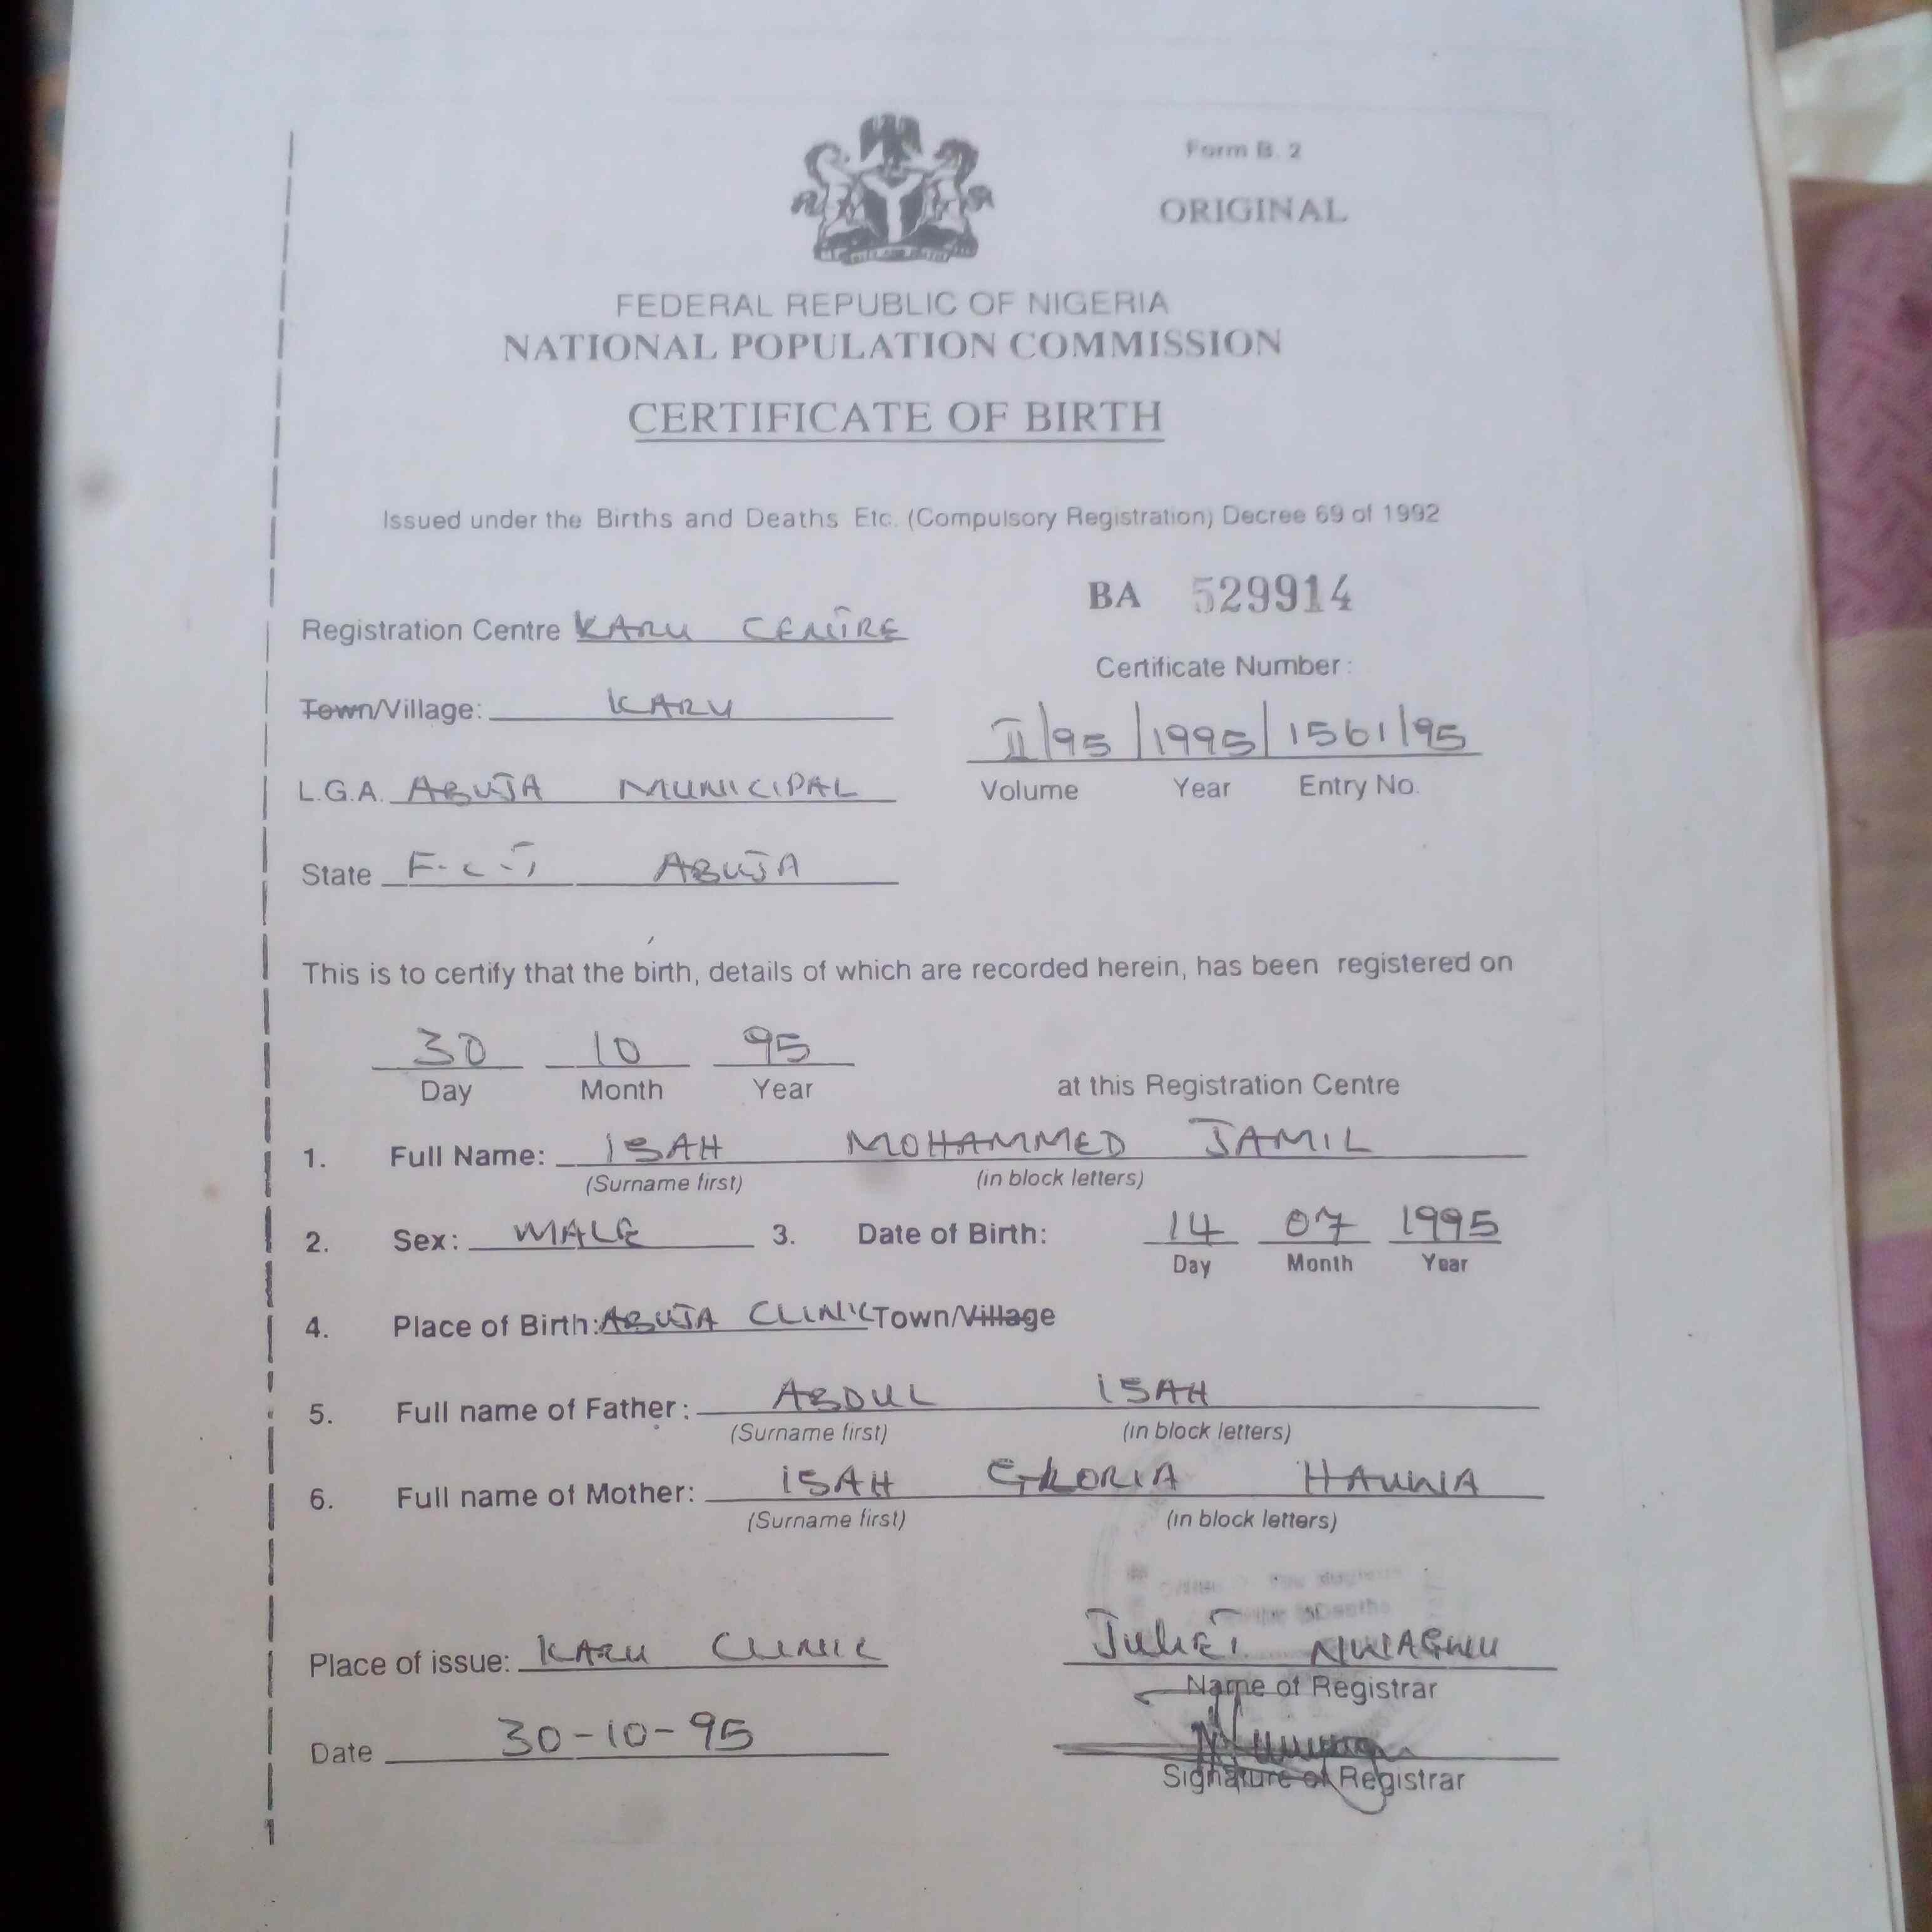 Form B. 2
ORIGINAL
FEDERAL REPUBLIC OF NIGERIA
NATIONAL POPULATION COMMISSION
CERTIFICATE OF BIRTH
Issued under the Births and Deaths Etc. (Compulsory Registration) Decree 69 of 1992
BA 529914
Registration Centre KARU CENTRE
Certificate Number:
Town/Village: KARU
II/95 / 1995 / 1561/95
L.G.A. ABUJA MUNICIPAL
Volume Year Entry No.
State F.C.T ABUJA
This is to certify that the birth, details of which are recorded herein, has been registered on
30 10 95
Day Month Year at this Registration Centre
1. Full Name: ISAH MOHAMMED JAMIL
(Surname first) (in block letters)
2. Sex: MALE 3. Date of Birth: 14 07 1995
Day Month Year
4. Place of Birth: ABUJA CLINIC Town/Village
5. Full name of Father: ABDUL ISAH
(Surname first) (in block letters)
6. Full name of Mother: ISAH GLORIA HAUWA
(Surname first) (in block letters)
Place of issue: KARU CLINIC JULIET NWAGWU
Name of Registrar
Date 30-10-95
Signature of Registrar